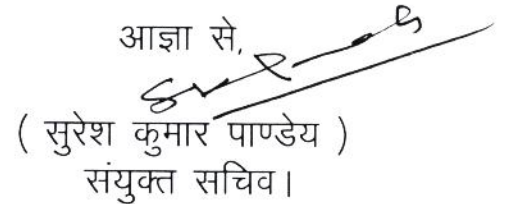 आज्ञा से,
( सुरेश कुमार पाण्डेय )
संयुक्त सचिव।